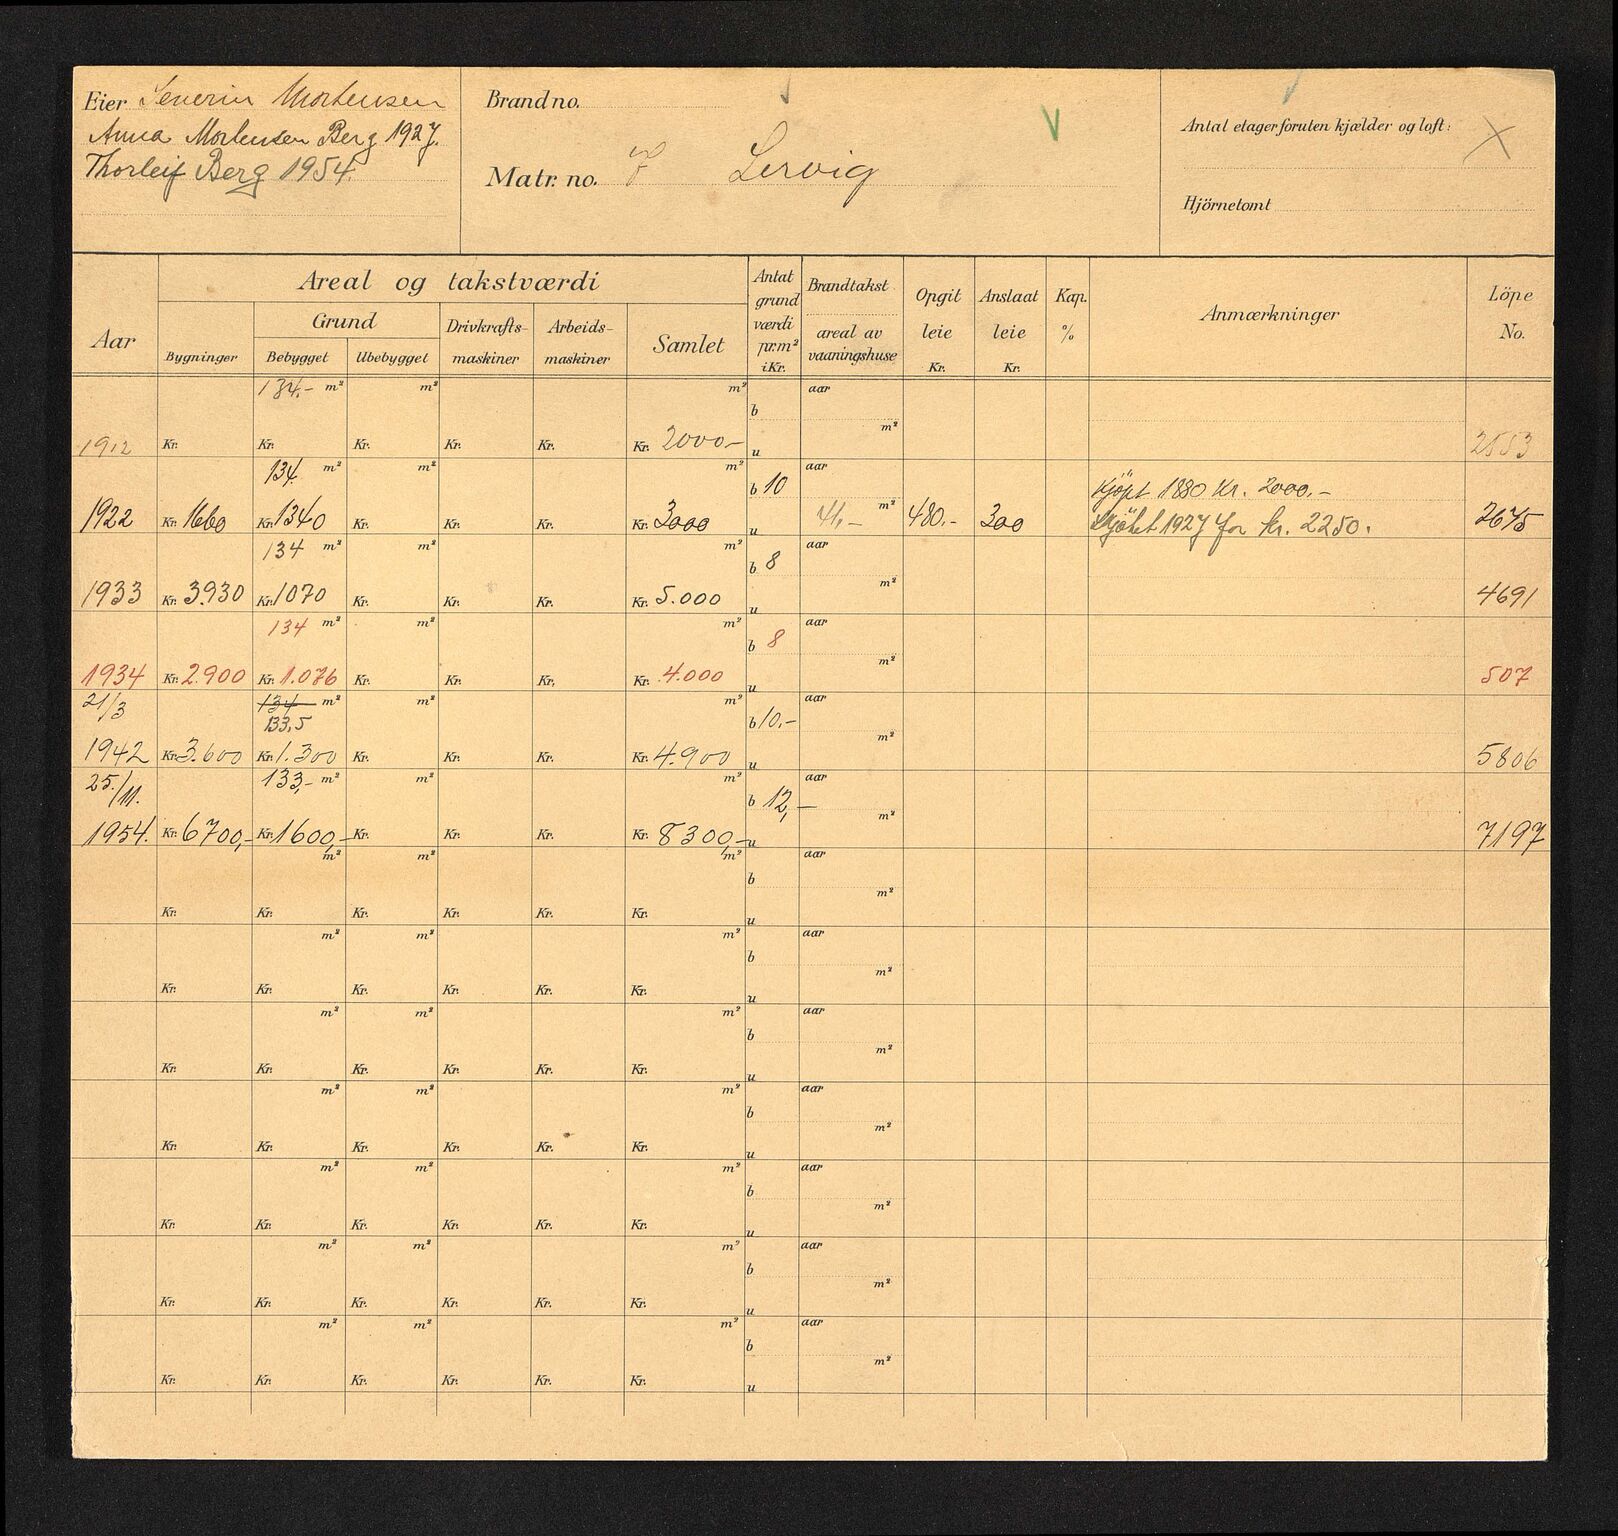 Eier Severin Mortensen
Anna Mortensen Berg 1927.
Thorleif Berg 1954.
Brand no.
Matr. no. 7 Lervig
Antal etager foruten kjælder og loft:
Hjörnetomt
Aar
Areal og takstværdi
Bygninger
Grund
Bebygget Ubebygget
Drivkrafts-
maskiner
Arbeids-
maskiner
Samlet
Antat
grund
værdi
pr. m²
i Kr.
Brandtakst
areal av
vaaningshuse
Opgit
leie
Kr.
Anslaat
leie
Kr.
Kap.
%
Anmærkninger
Löpe
No.
134.- m² m² m² b aar m²
1912 Kr. Kr. Kr. Kr. Kr. Kr. 2000.- u 2553
134. m² m² m² b 10 aar Kjöpt 1880 Kr. 2000.-
1922 Kr. 1660 Kr. 1340 Kr. Kr. Kr. Kr. 3000 u m² 480.- 300 Skjötet 1927 for kr. 2250. 2675
134 m² m² m² b 8 aar m²
1933 Kr. 3.930 Kr. 1070 Kr. Kr. Kr. Kr. 5.000 u 4691
134 m² m² m² b 8 aar m²
1934 Kr. 2.900 Kr. 1.076 Kr. Kr. Kr. Kr. 4.000 u 507
21/3 134 m² m² m² b 10.- aar
133,5 m²
1942 Kr. 3.600 Kr. 1.300 Kr. Kr. Kr. Kr. 4.900 u 5806
25./11. 133,- m² m² m² b 12,- aar m²
1954. Kr. 6700,- Kr. 1600,- Kr. Kr. Kr. Kr. 8300,- u 7197
m² m² m² b aar m²
Kr. Kr. Kr. Kr. Kr. Kr. u
m² m² m² b aar m²
Kr. Kr. Kr. Kr. Kr. Kr. u
m² m² m² b aar m²
Kr. Kr. Kr. Kr. Kr. Kr. u
m² m² m² b aar m²
Kr. Kr. Kr. Kr. Kr. Kr. u
m² m² m² b aar m²
Kr. Kr. Kr. Kr. Kr. Kr. u
m² m² m² b aar m²
Kr. Kr. Kr. Kr. Kr. Kr. u
m² m² m² b aar m²
Kr. Kr. Kr. Kr. Kr. Kr. u